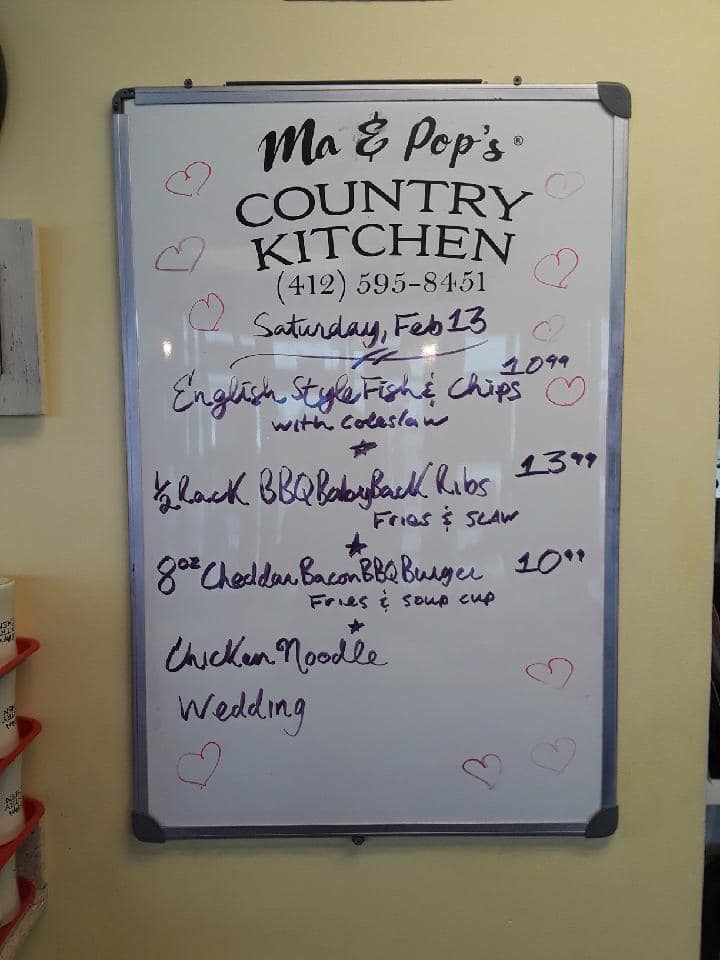 Ma & Pop's®
COUNTRY
KITCHEN
(412) 595-8451
Saturday, Feb 13
English Style Fish & Chips 10.99
with Coleslaw
½ Rack BBQ Baby Back Ribs 13.99
Fries & SLAW
8oz Cheddar Bacon BBQ Burger 10.99
Fries & soup cup
Chicken Noodle
Wedding